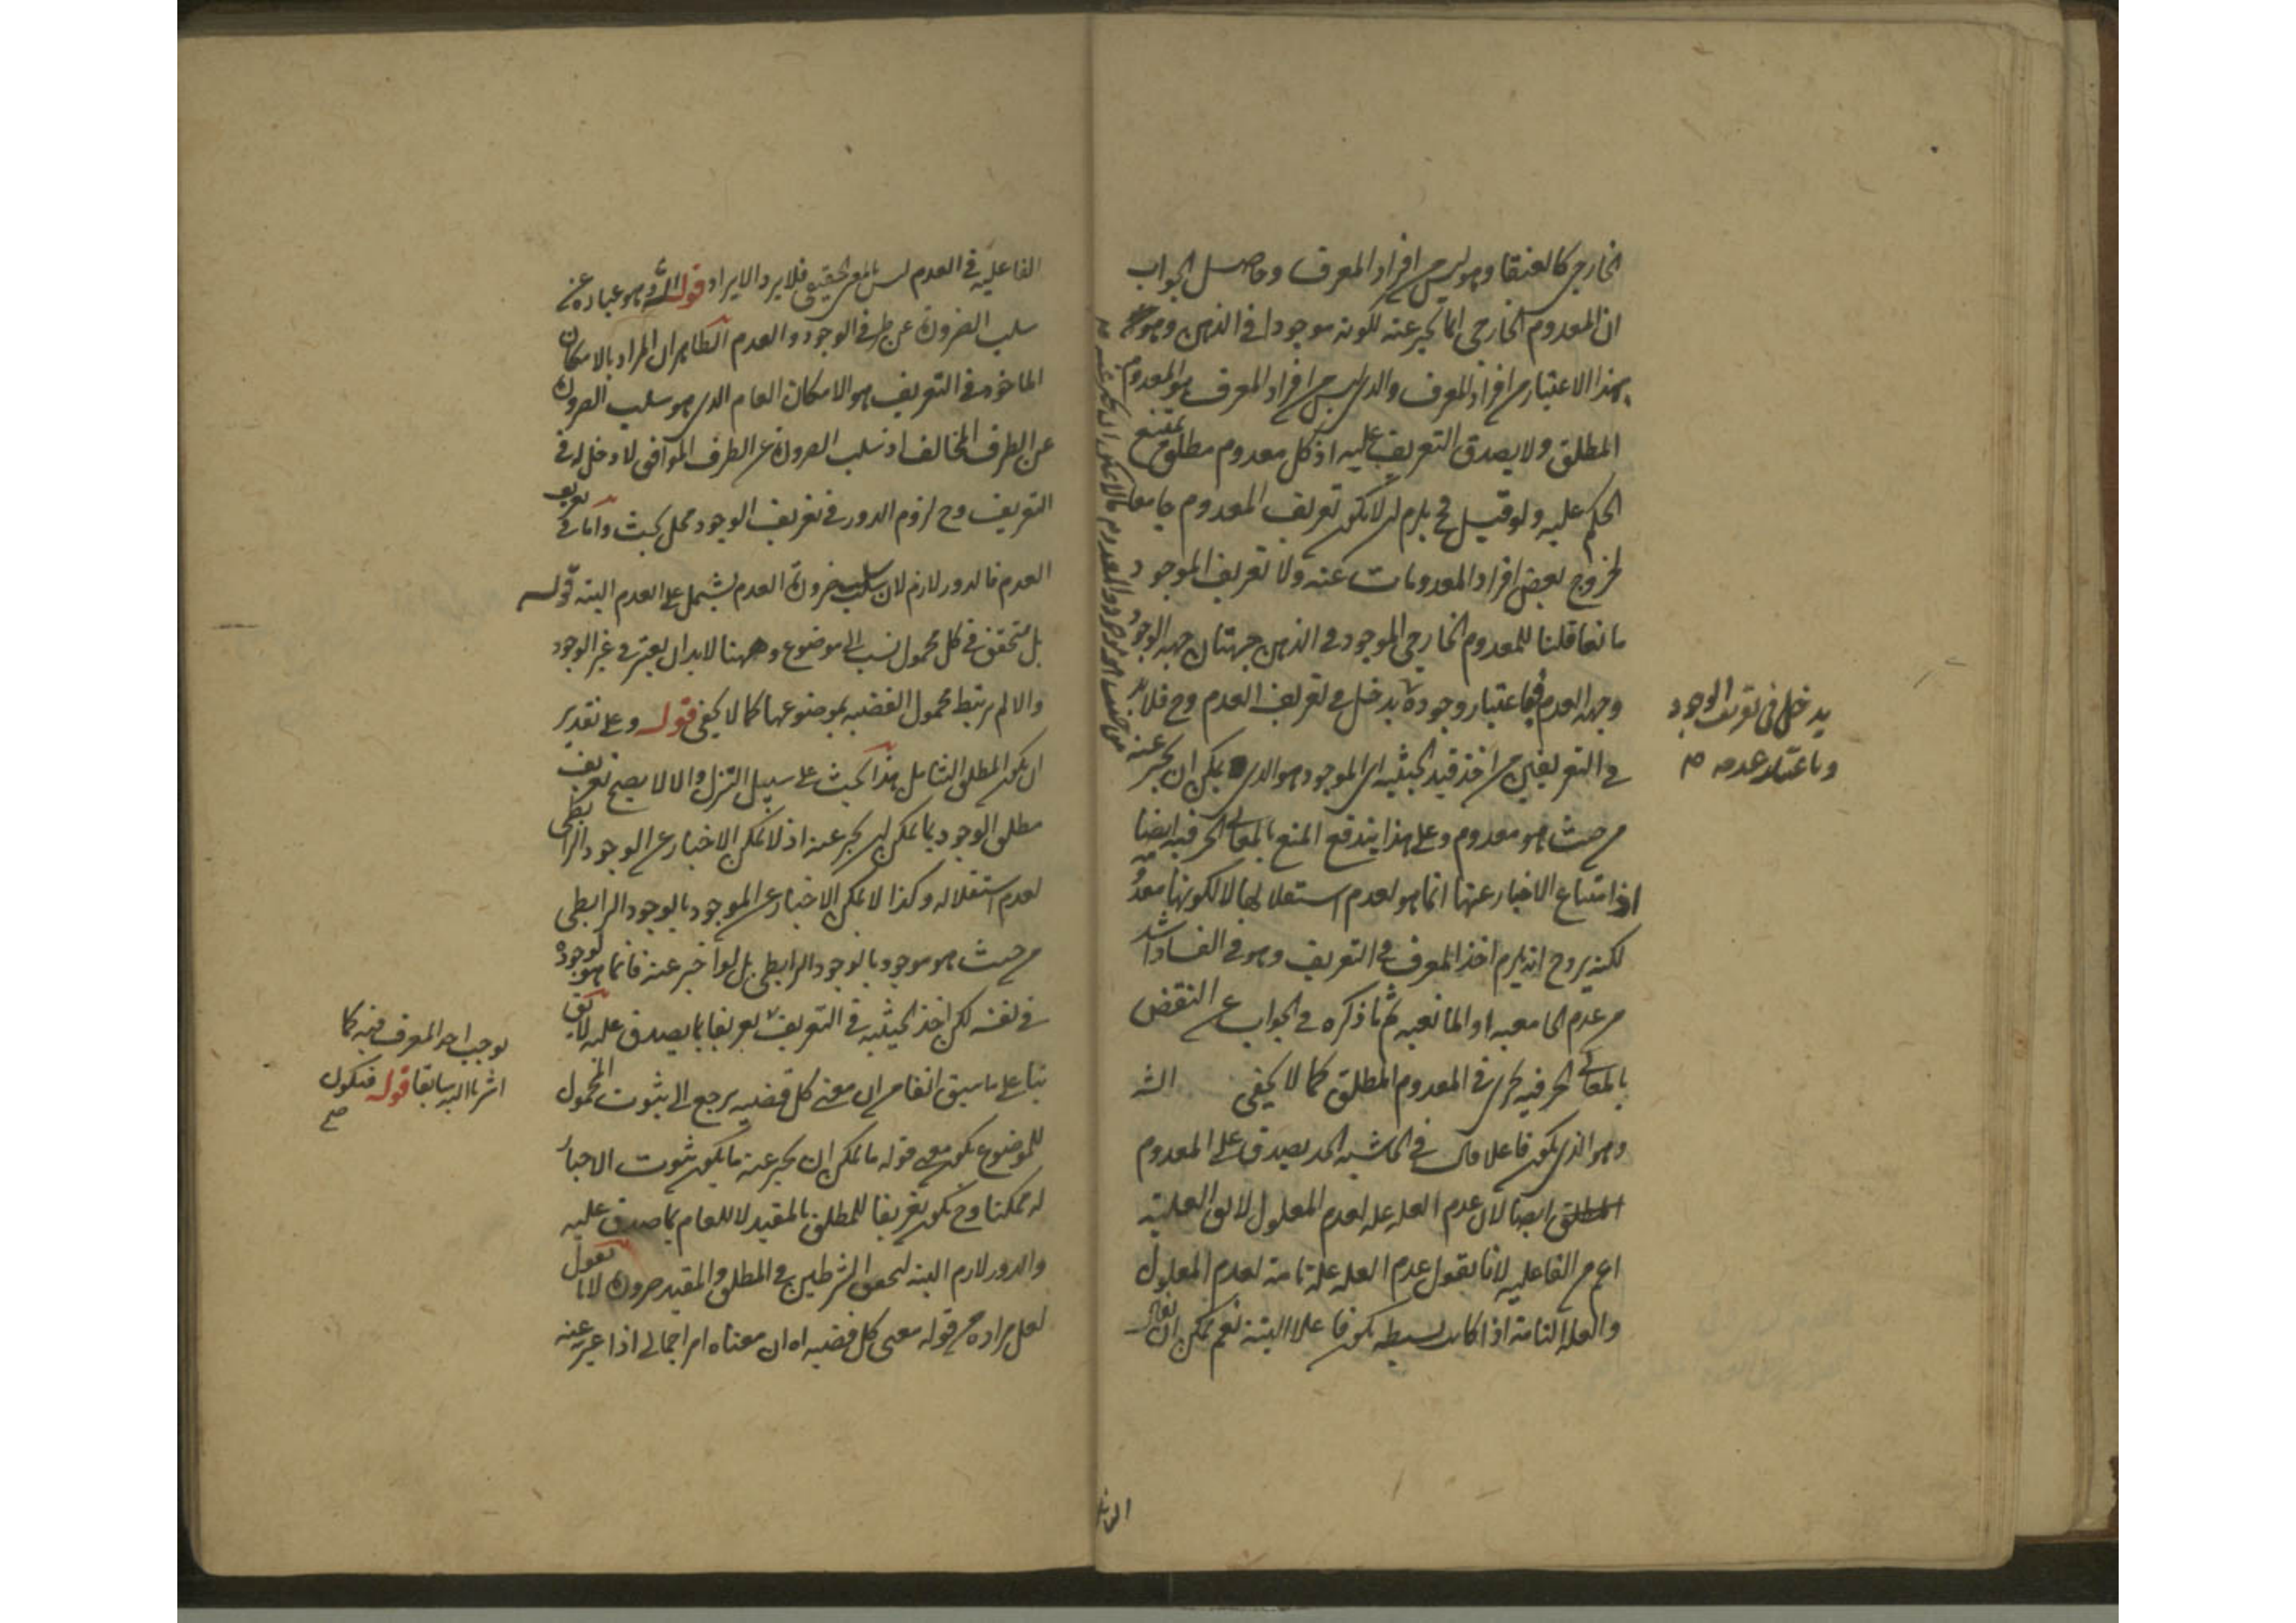 الخارجي كالعنقا وهو ليس من افراد المعرف وحاصل الجواب
ان المعدوم الخارجي انما يخبر عنه لكونه موجودا في الذهن وهو
بهذا الاعتبار من افراد المعرف والذي ليس من افراد المعرف هو المعدوم
المطلق ولا يصدق التعريف عليه اذ كل معدوم مطلق يمتنع
الحكم عليه ولو قيل فح يلزم ان لا يكون تعريف المعدوم جامعا
لخروج بعض افراد المعدومات عنه ولا تعريف الموجود
مانعا قلنا للمعدوم الخارجي الموجود في الذهن جهتان جهه الوجود
وجهه العدم فباعتبار وجوده يدخل في تعريف العدم وح فلا بد
يدخل في تعريف الوجود
وباعتبار عدمه صح
في التعريفين من اخذ قيد الحيثيه اي الموجود هو الذي يمكن ان يخبر عنه
من حيث هو موجود والمعدوم ما لا يمكن ان يخبر عنه صح
من حيث هو معدوم وعلى هذا يندفع المنع بالمعاني الحرفيه ايضا
اذ امتناع الاخبار عنها انما هو لعدم استقلالها لا لكونها معدومة
لكنه يرد ح انه يلزم اخذ المعرف في التعريف وهو في الفساد اشد
من عدم الجامعيه او المانعيه ثم ما ذكره في الجواب عن النقض
بالمعاني الحرفيه يجري في المعدوم المطلق كما لا يخفى
وهو الذي يكون فاعلا قال في الحاشيه الحد يصدق على المعدوم
المطلق ايضا لان عدم العله عله لعدم المعلول لا يق العليه
اعم من الفاعليه لانا نقول عدم العله علة تامة لعدم المعلول
والعلة التامة اذا كانت بسيطه يكون فاعلا البتة نعم يمكن ان يقال
الفاعليه في العدم ليس بالمعنى الحقيقي فلا يرد الايراد قوله وهو عباره عن
سلب الضرورة عن طرفي الوجود والعدم الظاهر ان المراد بالامكان
الماخوذ في التعريف هو الامكان العام الذي هو سلب الضرورة
عن الطرف المخالف اذ سلب الضرورة عن الطرف الموافق لا دخل له في
التعريف وح لزوم الدور في تعريف الوجود محل بحث واما في تعريف
العدم فالدور لازم لان سلب ضرورة العدم يشمل على العدم البته قوله
بل متحقق في كل محمول نسب الى موضوع وههنا لا بد ان يعتبر في غير الوجود
والا لم يرتبط محمول القضيه بموضوعها كما لا يخفى قوله وعلى تقدير
ان يكون المطلق الشامل هذا البحث على سبيل التنزل والا لا يصح تعريف
مطلق الوجود بما يمكن ان يخبر عنه اذ لا يمكن الاخبار عن الوجود الرابطي
لعدم استقلاله وكذا لا يمكن الاخبار عن الموجود بالوجود الرابطي
من حيث هو موجود بالوجود الرابطي بل لو اخبر عنه فانما هو لوجوده
في نفسه لكن اخذ الحيثيه في التعريف تعريفا بما يصدق عليه لا يق
يوجب اخذ المعرف فيه كما
اشرنا اليه سابقا قوله فيكون
صح
بنا على ما سبق انفا من ان معنى كل قضيه يرجع الى ثبوت المحمول
للموضوع يكون معنى قوله ما يمكن ان يخبر عنه ما يكون ثبوت الاخبار
له ممكنا وح يكون تعريفا للمطلق بالمقيد لا للعام بما صدق عليه
والدور لازم البته لتحقق الشرطين في المطلق والمقيد ضرورة لانا نقول
لعل مراده من قوله معنى كل قضيه اه ان معناه امر اجمالي اذا عبر عنه